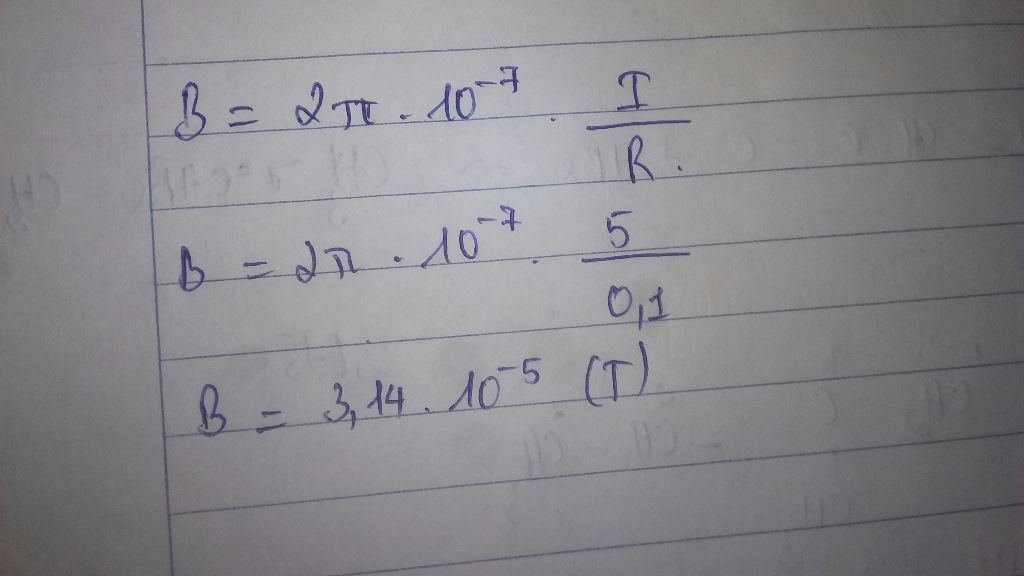 B = 2π · 10⁻⁷ · I/R.
B = 2π · 10⁻⁷ · 5/0,1
B = 3,14 · 10⁻⁵ (T)